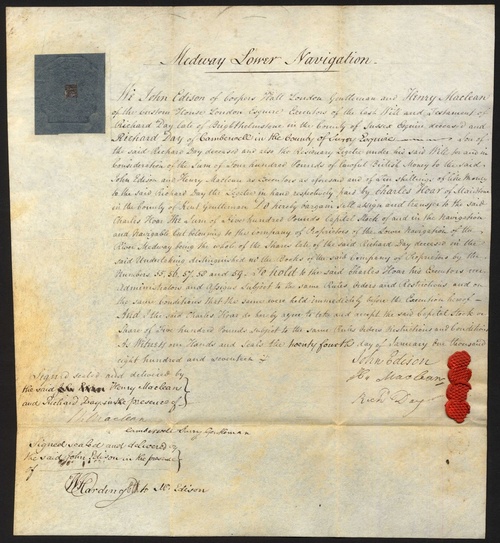 Medway Lower Navigation.
We John Edison of Coopers Hall London Gentleman and Henry Maclean
of the Custom House London Esquire Executors of the last Will and Testament of
Richard Day late of Brighthelmstone in the County of Sussex Esquire deceased and
Richard Day of Camberwell in the County of Surry Esquire Son of
the said Richard Day deceased and also the Residuary Legatee under his said Will, for and in
Consideration of the Sum of Four hundred Pounds of lawful British Money to the said
John Edison and Henry Maclean as Executors as aforesaid and of ten Shillings of like Money
to the said Richard Day the Legatee in hand respectively paid by Charles Hoar of Maidstone
in the County of Kent Gentleman Do hereby bargain sell assign and transfer to the said
Charles Hoar The Sum of Five hundred Pounds Capital Stock of and in the Navigation
and Navigable Cut belonging to the Company of Proprietors of the Lower Navigation of the
River Medway being the whole of the Shares late of the said Richard Day deceased in the
said Undertaking distinguished in the Books of the said Company of Proprietors by the
Numbers 55, 56, 57, 58 and 59. To hold to the said Charles Hoar his Executors
Administrators and Assigns Subject to the same Rules Orders and Restrictions and on
the same Conditions that the same were held immediately before the Execution hereof
And I the said Charles Hoar do hereby agree to take and accept the said Capital Stock or
Share of Five hundred Pounds subject to the same Rules Orders Restrictions and Conditions
As Witness our Hands and Seals the twenty fourth day of January One thousand
eight hundred and seventeen
John Edison
Signed sealed and delivered by
the said Henry Maclean
Hy Maclean
and Richard Day in the presence of
Richd Day
Maclean
Camberwell Surry Gentleman
Signed sealed and delivered by
the said John Edison in the presence
of
Harding Clk to Mr Edison